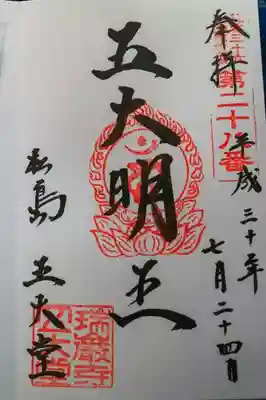 奉拝
第二十八番
平成三十年七月二十四日
五大明王
松島 五大堂
瑞巌寺
五大堂